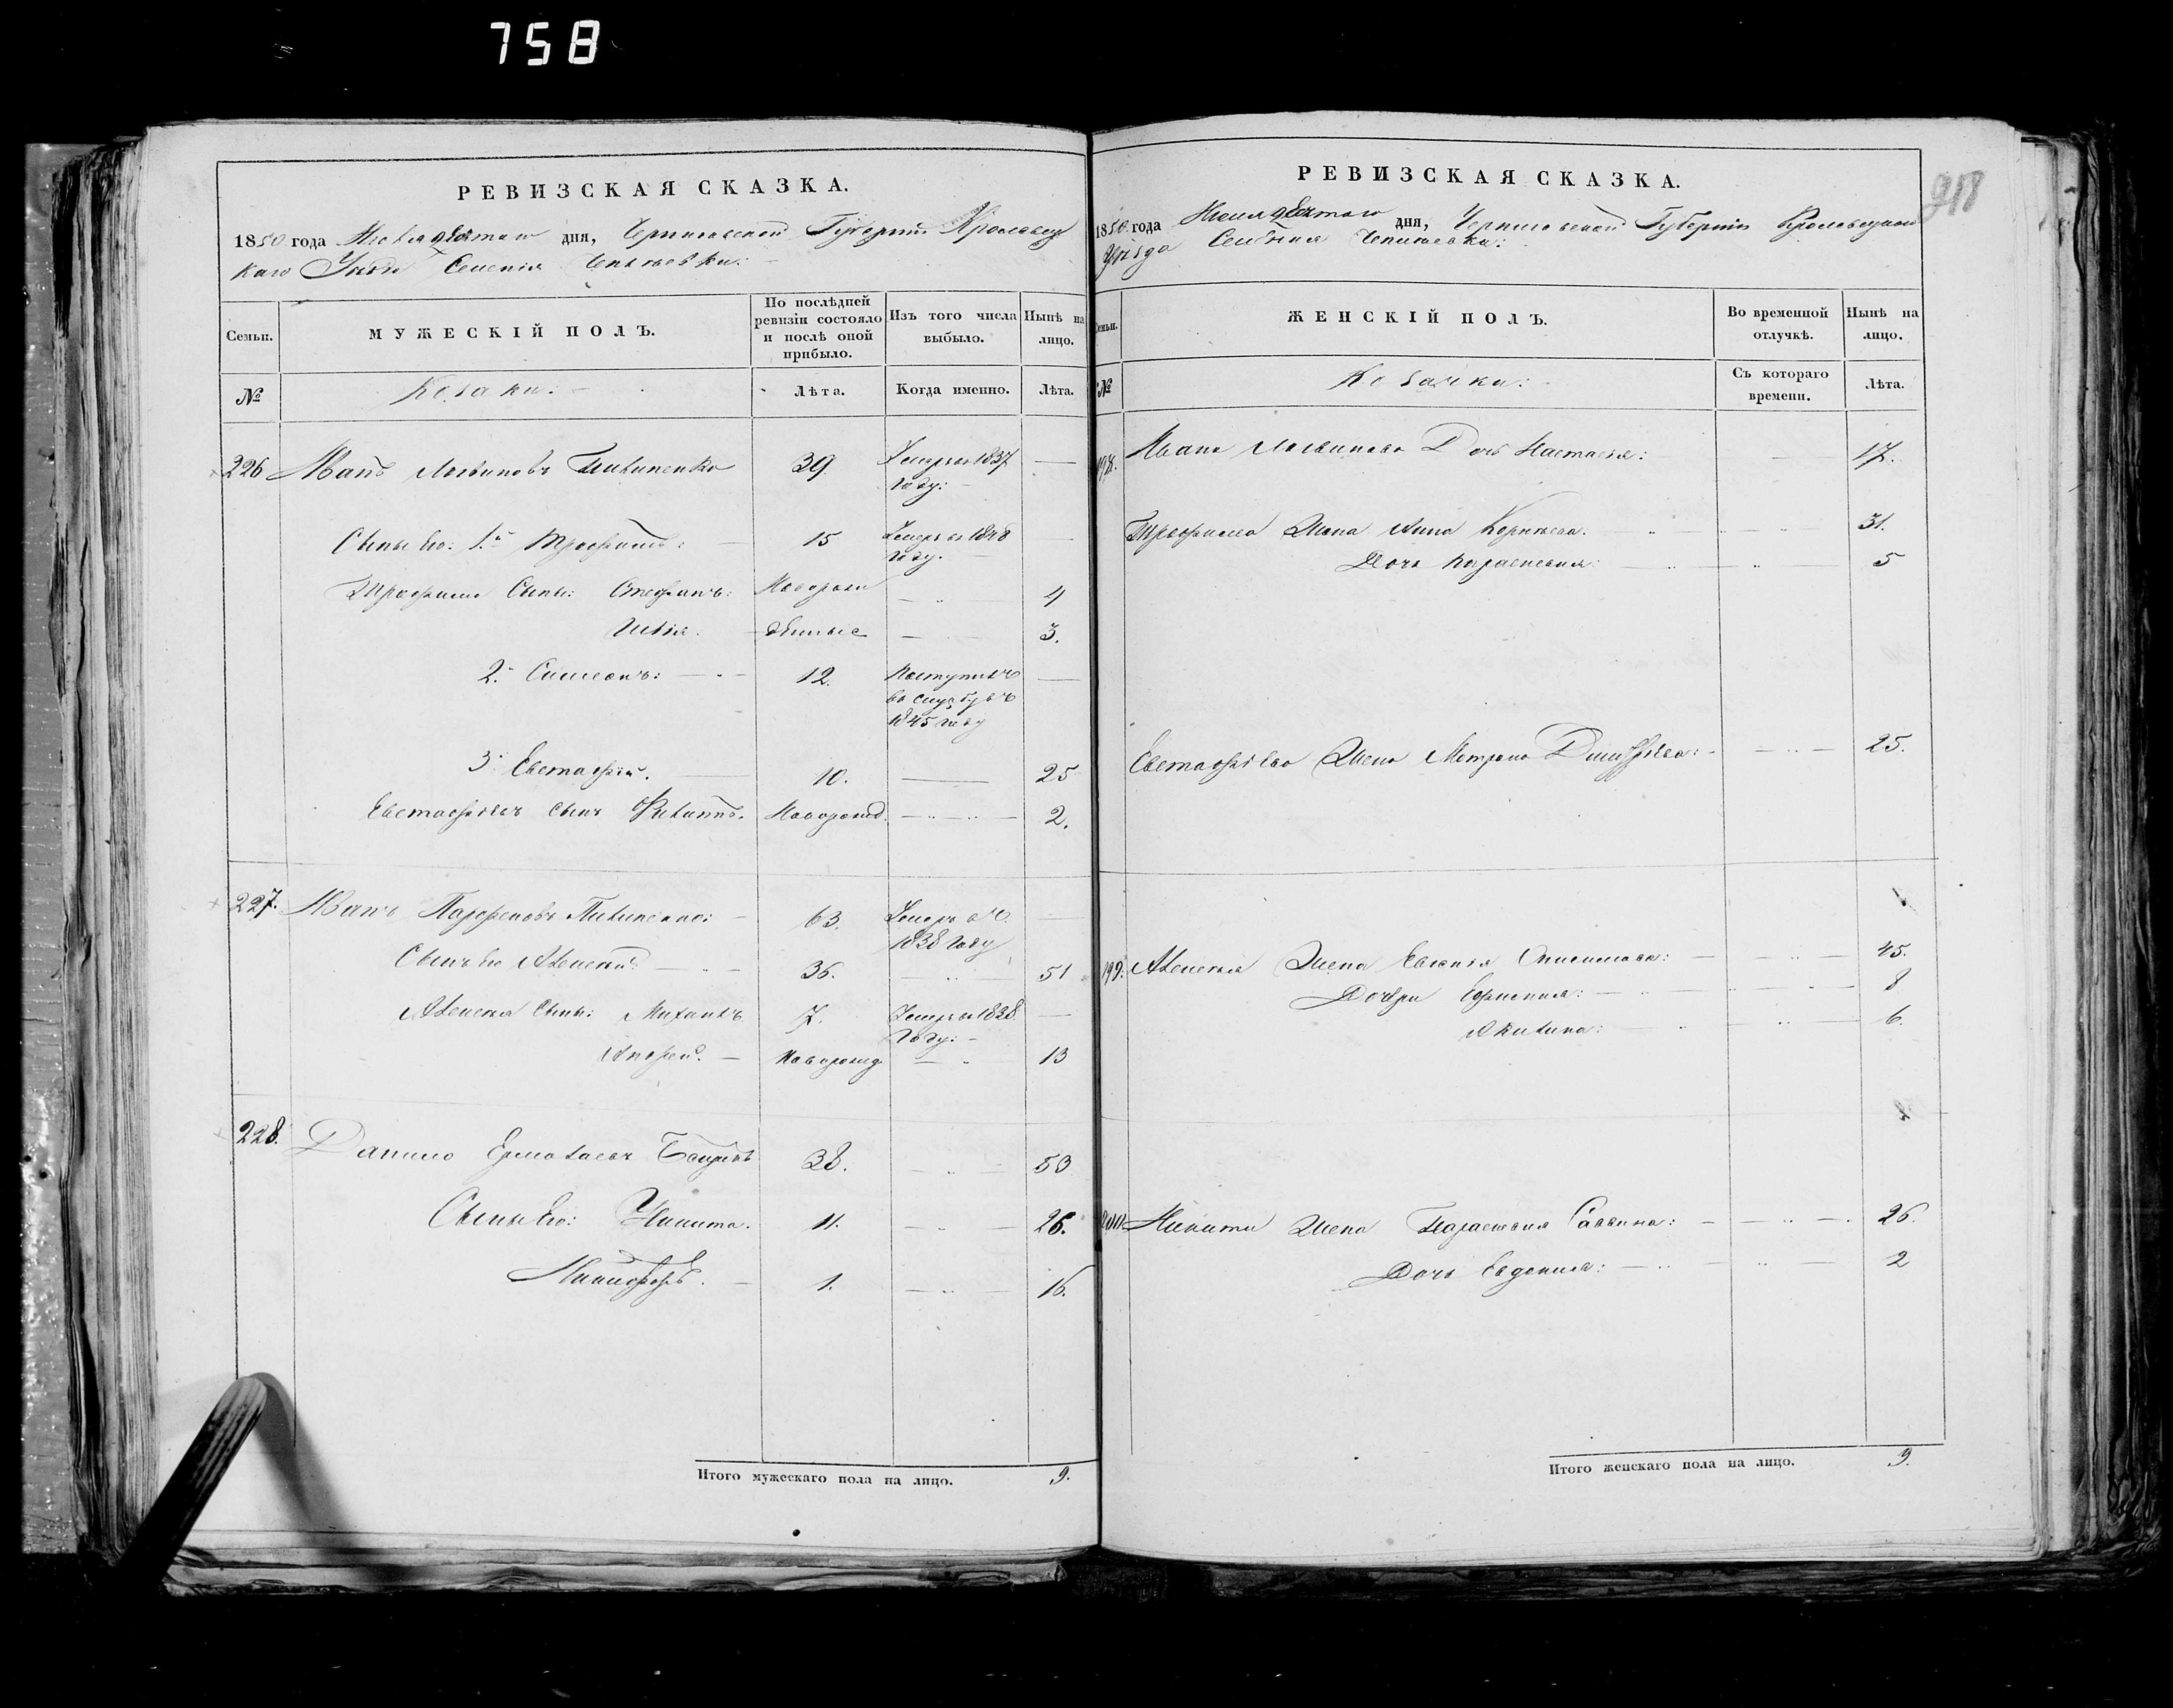 758
РЕВИЗСКАЯ СКАЗКА.
1850 года дня, Черниговской Губерніи Кролевец
каго Уезда Селенія
Семьи. МУЖЕСКІЙ ПОЛЪ. По послѣдней ревизіи состояло и послѣ оной прибыло. Изъ того числа выбыло. Нынѣ на лицо.
№ Козаки: Лѣта. Когда именно. Лѣта.
226 Иванъ Логвиновъ 39 Умеръ въ 1837 году: —
Сыны Его: 1й Трофимъ: 15 Умеръ въ 1848 году. —
Трофима Сыны: Стефанъ: Новорож 4
Илія. денные 3.
2й Симеонъ: 12. Поступилъ въ службу въ 1845 году —
3й Евстафій. 10. — 25
Евстафіевъ сынъ Филиппъ. Новорожд. 2.
227. Иванъ Парфеновъ 63. Умеръ въ 1838 году —
Сынъ Его Алексей: 36. 51
Алексея Сыны: Михаилъ 7. Умеръ въ 1838 году: —
Андрей. Новорожд 13
228. Данило Ермолаевъ 38. 53
Сыны Его: Никита. 11. 26.
Никифоръ. 1. 16.
Итого мужескаго пола на лицо. 9.
РЕВИЗСКАЯ СКАЗКА.
918
1850 года дня, Черниговской Губерніи Кролевецкаго
Уезда Селенія
Семьи. ЖЕНСКІЙ ПОЛЪ. Во временной отлучкѣ. Нынѣ на лицо.
№ Козачки: Съ котораго времени. Лѣта.
198. Ивана Логвинова Дочь Настасія: 17.
Трофима Жена Анна Корнеева. 31.
Дочь Параскевия: 5
Евстафіева Жена Матрона Дмитріева: 25.
199. Алексея Жена Евгенія Онисимова: 45.
Дочери Ефимия: 8
Акилина: 6.
200 Никиты Жена Параскевия Саввина: 26.
Дочь Евдокия: 2
Итого женскаго пола на лицо. 9.